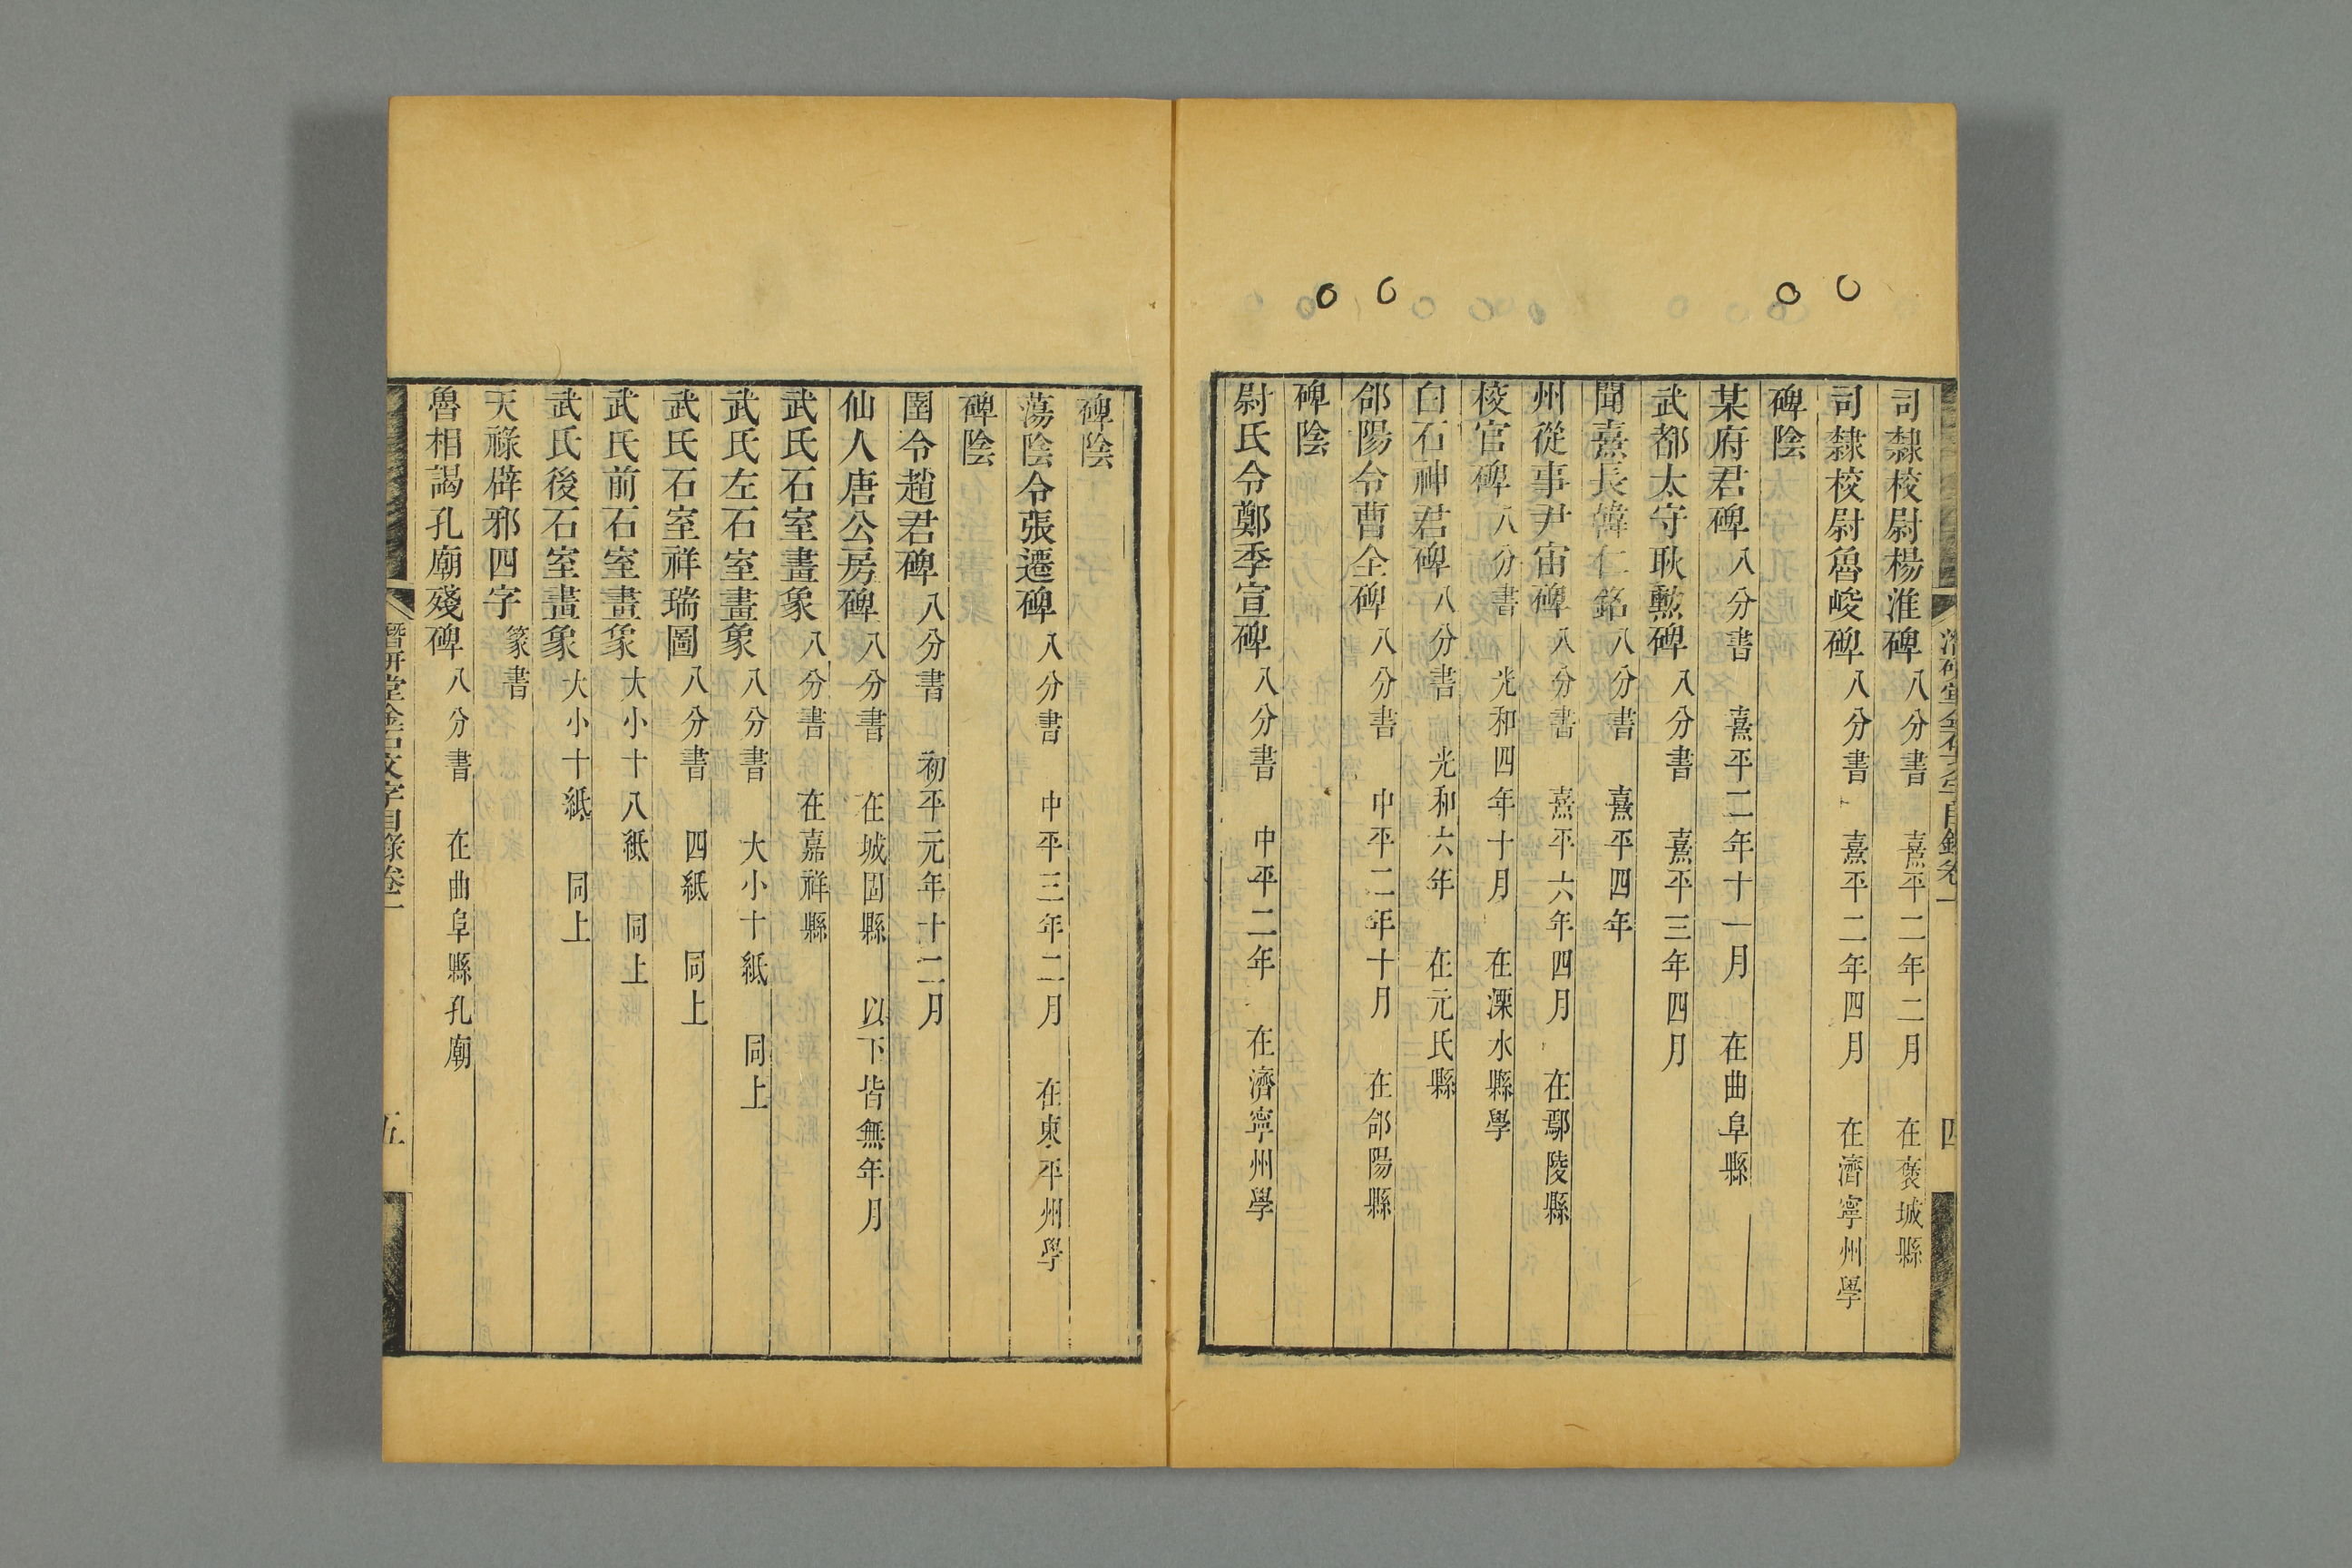 司隸校尉楊淮碑 八分書 熹平二年二月 在褒城縣
司隸校尉魯峻碑 八分書 熹平二年四月 在濟寧州學
碑陰
某府君碑 八分書 熹平二年十一月 在曲阜縣
武都太守耿勲碑 八分書 熹平三年四月
聞熹長韓仁銘 八分書 熹平四年
州從事尹宙碑 八分書 熹平六年四月 在鄢陵縣
校官碑 八分書 光和四年十月 在溧水縣學
白石神君碑 八分書 光和六年 在元氏縣
郃陽令曹全碑 八分書 中平二年十月 在郃陽縣
碑陰
尉氏令鄭季宣碑 八分書 中平二年 在濟寧州學
碑陰
蕩陰令張遷碑 八分書 中平三年二月 在東平州學
碑陰
圉令趙君碑 八分書 初平元年十二月
仙人唐公房碑 八分書 在城固縣 以下皆無年月
武氏石室畫象 八分書 在嘉祥縣
武氏左石室畫象 八分書 大小十紙 同上
武氏石室祥瑞圖 八分書 四紙 同上
武氏前石室畫象 大小十八紙 同上
武氏後石室畫象 大小十紙 同上
天祿辟邪四字 篆書
魯相謁孔廟殘碑 八分書 在曲阜縣孔廟
潛研堂金石文字目錄卷一 五